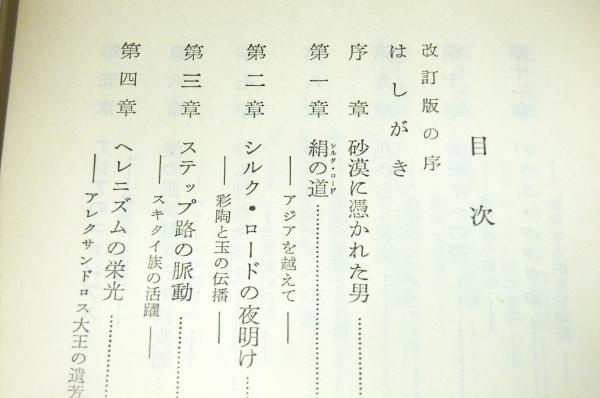 目次
改訂版の序
はしがき
序章 砂漠に憑かれた男…………
第一章 絹の道…………
シルク・ロード
――アジアを越えて――
第二章 シルク・ロードの夜明け…………
――彩陶と玉の伝播――
第三章 ステップ路の脈動…………
――スキタイ族の活躍――
第四章 ヘレニズムの栄光…………
――アレクサンドロス大王の遺芳